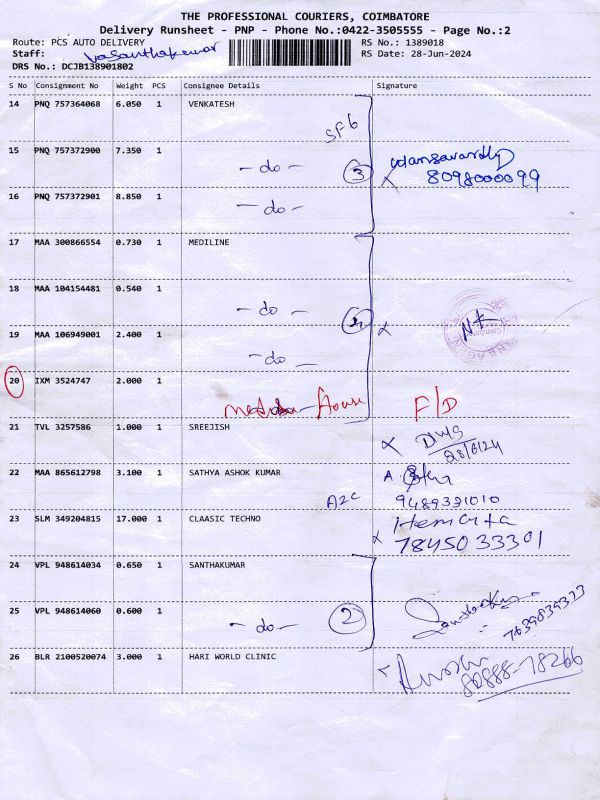 THE PROFESSIONAL COURIERS, COIMBATORE
Delivery Runsheet - PNP - Phone No.:0422-3505555 - Page No.:2
Route: PCS AUTO DELIVERY RS No.: 1389018
Staff: Vasanthakumar RS Date: 28-Jun-2024
DRS No.: DCJB138901802
S No Consignment No Weight PCS Consignee Details Signature
14 PNQ 757364068 6.050 1 VENKATESH
SF6
15 PNQ 757372900 7.350 1
- do - 3 8098000099
16 PNQ 757372901 8.850 1
- do -
17 MAA 300866554 0.730 1 MEDILINE
18 MAA 104154481 0.540 1
- do - 4
19 MAA 106949001 2.400 1
- do -
20 IXM 3524747 2.000 1
House F/D
21 TVL 3257586 1.000 1 SREEJISH
28/6/24
22 MAA 865612798 3.100 1 SATHYA ASHOK KUMAR
A2C 9489331010
23 SLM 349204815 17.000 1 CLAASIC TECHNO
7845033301
24 VPL 948614034 0.650 1 SANTHAKUMAR
25 VPL 948614060 0.600 1
- do - 2 7639839323
26 BLR 2100520074 3.000 1 HARI WORLD CLINIC
80888-78266